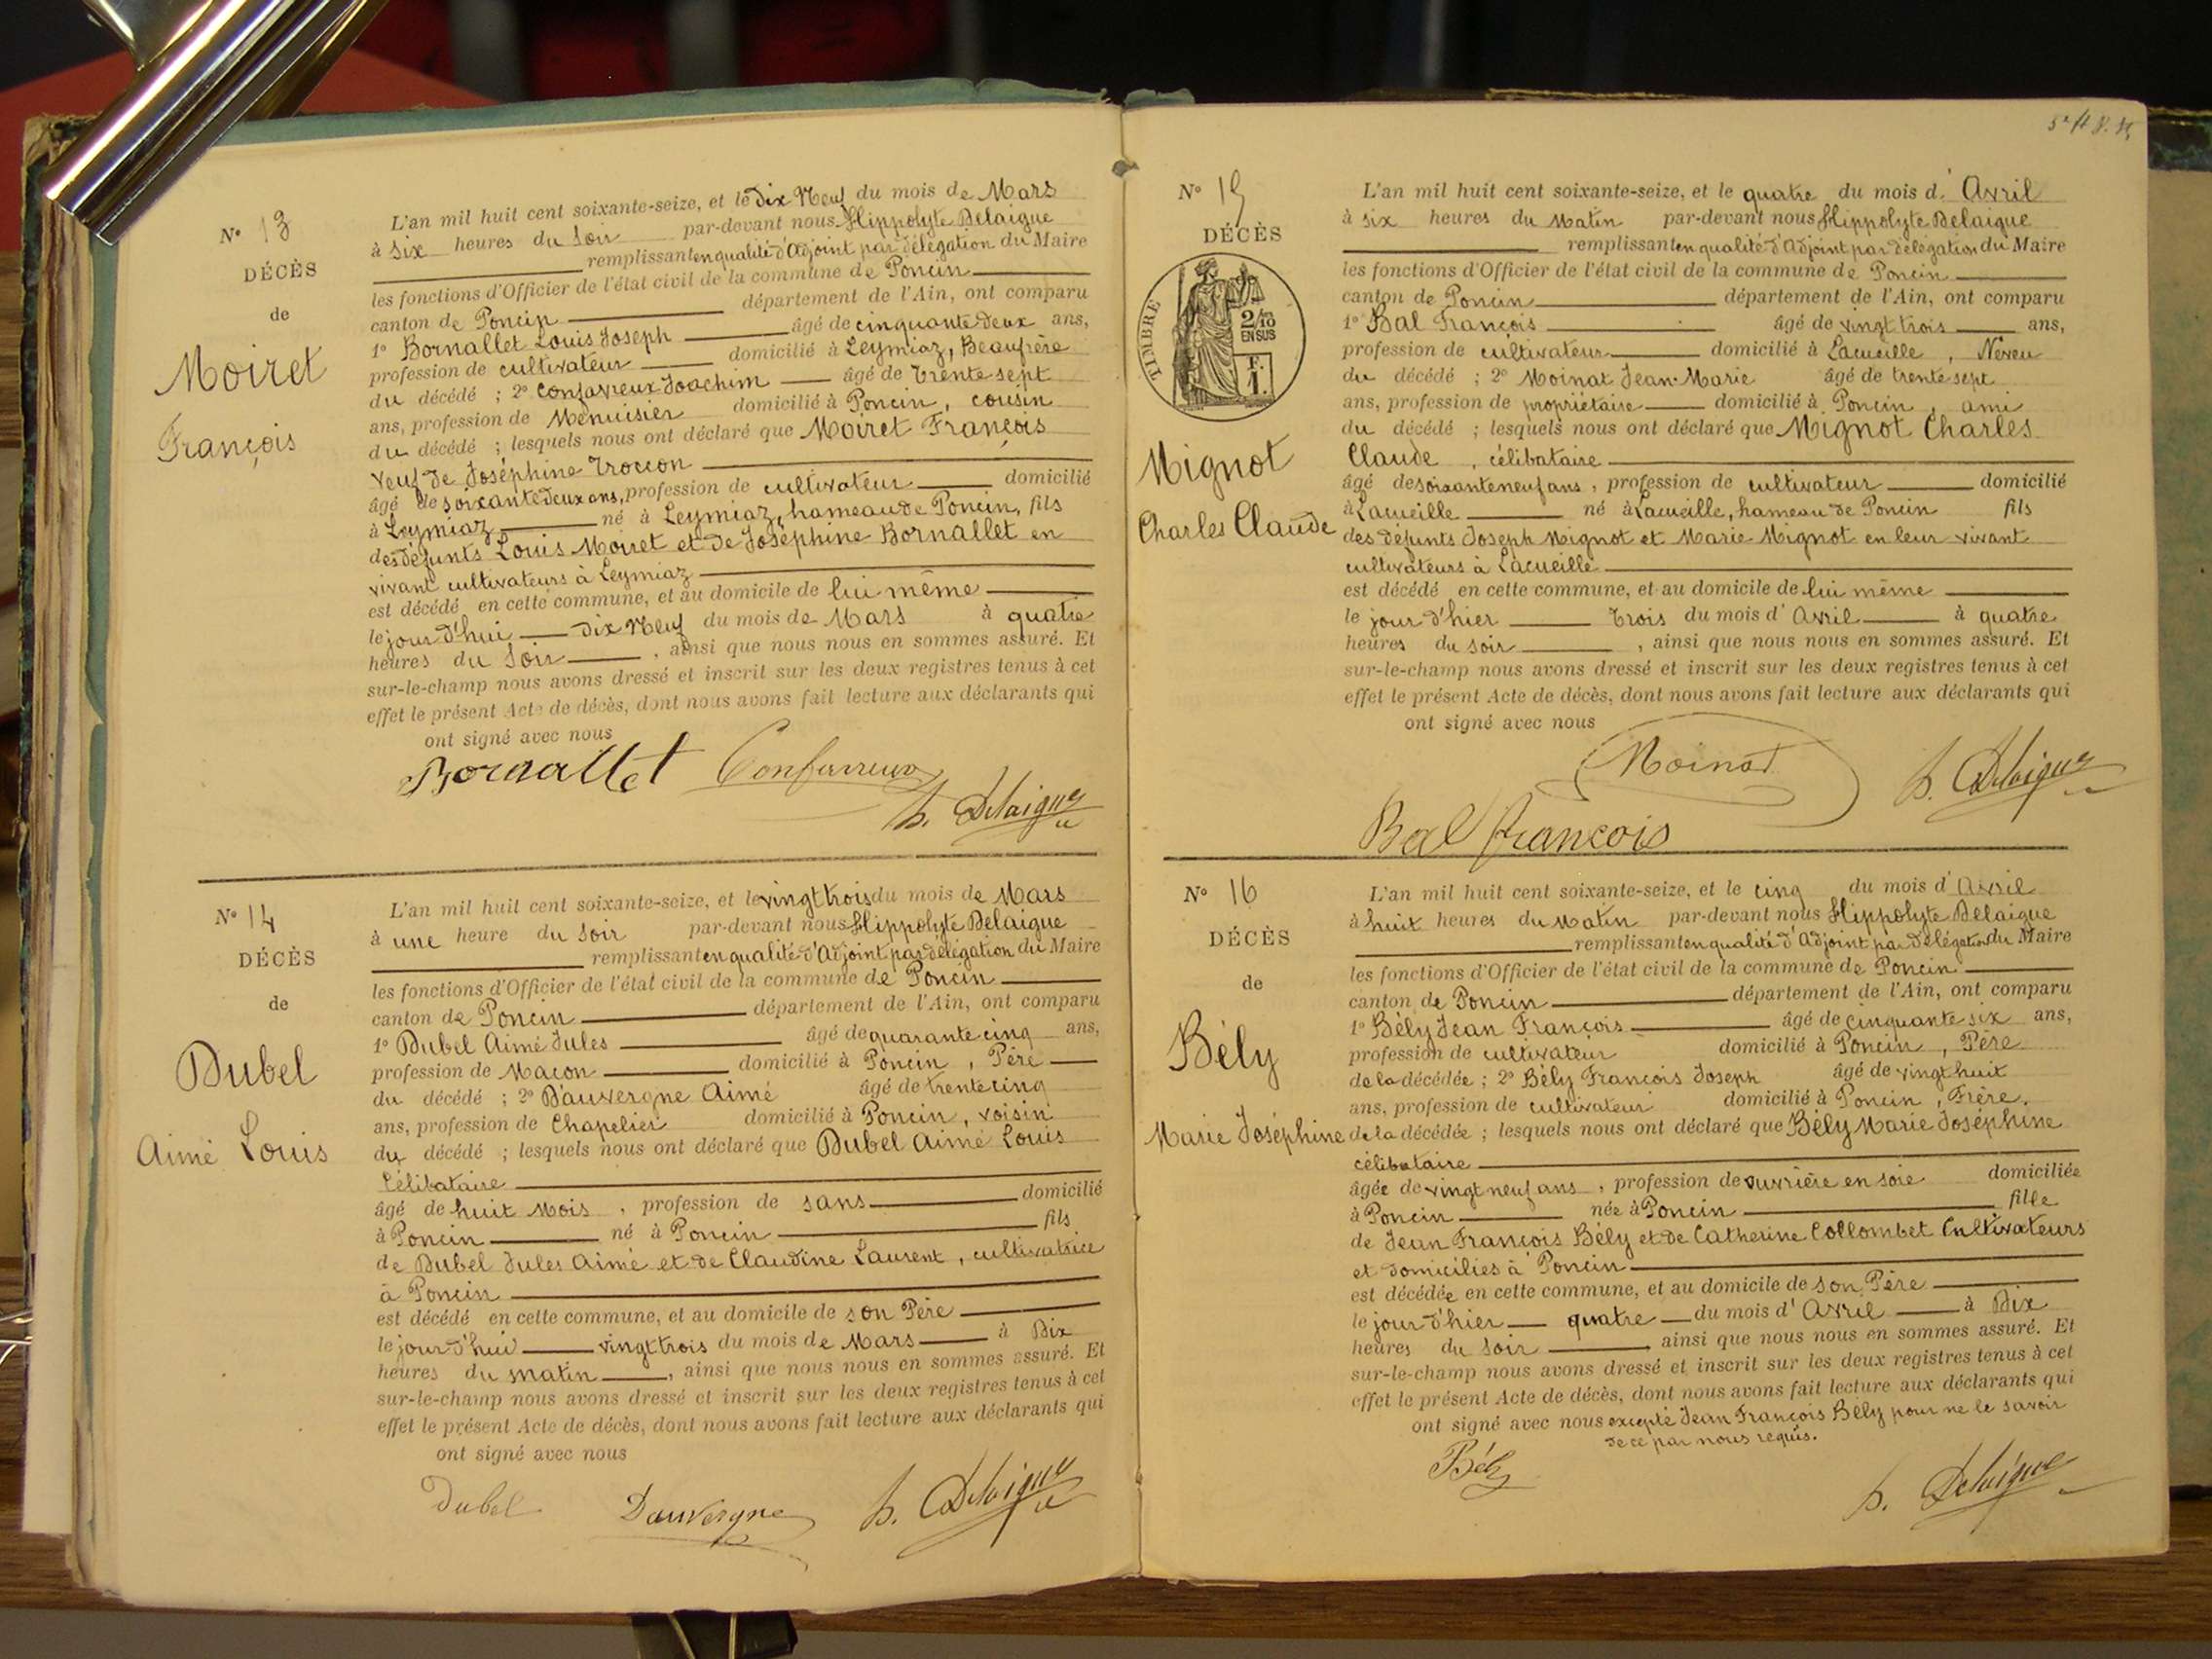 N° 13
DÉCÈS
de
Moiret
François
L'an mil huit cent soixante-seize, et le Dix Neuf du mois de Mars
à six heures du soir par-devant nous Hippolyte Delaigue
remplissant en qualité d'Adjoint par délégation du Maire
les fonctions d'Officier de l'état civil de la commune de Poncin
canton de Poncin département de l'Ain, ont comparu
1° Bornallet Louis Joseph âgé de cinquante deux ans,
profession de cultivateur domicilié à Leymiaz, Beaufrère
du décédé ; 2° Confavreux Joachim âgé de trente sept
ans, profession de Menuisier domicilié à Poncin, cousin
du décédé ; lesquels nous ont déclaré que Moiret François
veuf de Joséphine Troccon
âgé de soixante deux ans, profession de cultivateur domicilié
à Leymiaz né à Leymiaz, hameau de Poncin, fils
des défunts Louis Moiret et de Joséphine Bornallet en
vivant cultivateurs à Leymiaz
est décédé en cette commune, et au domicile de lui même
le jour d'hui dix Neuf du mois de Mars à quatre
heures du soir, ainsi que nous nous en sommes assuré. Et
sur-le-champ nous avons dressé et inscrit sur les deux registres tenus à cet
effet le présent Acte de décès, dont nous avons fait lecture aux déclarants qui
ont signé avec nous
Bornallet Confavreux
h. Delaigue
N° 14
DÉCÈS
de
Dubel
Aimé Louis
L'an mil huit cent soixante-seize, et le vingt trois du mois de Mars
à une heure du soir par-devant nous Hippolyte Delaigue
remplissant en qualité d'Adjoint par délégation du Maire
les fonctions d'Officier de l'état civil de la commune de Poncin
canton de Poncin département de l'Ain, ont comparu
1° Dubel Aimé Jules âgé de quarante cinq ans,
profession de Maçon domicilié à Poncin, Père
du décédé ; 2° Dauvergne Aimé âgé de trente cinq
ans, profession de Chapelier domicilié à Poncin, voisin
du décédé ; lesquels nous ont déclaré que Dubel Aimé Louis
célibataire
âgé de huit Mois, profession de sans domicilié
à Poncin né à Poncin fils
de Dubel Jules Aimé et de Claudine Laurent, cultivatrice
à Poncin
est décédé en cette commune, et au domicile de son Père
le jour d'hui vingt trois du mois de Mars à Dix
heures du matin, ainsi que nous nous en sommes assuré. Et
sur-le-champ nous avons dressé et inscrit sur les deux registres tenus à cet
effet le présent Acte de décès, dont nous avons fait lecture aux déclarants qui
ont signé avec nous
Dubel Dauvergne h. Delaigue
N° 15
DÉCÈS
TIMBRE
2/10
EN SUS
F.
1.
Mignot
Charles Claude
L'an mil huit cent soixante-seize, et le quatre du mois d' Avril
à six heures du Matin par-devant nous Hippolyte Delaigue
remplissant en qualité d'Adjoint par délégation du Maire
les fonctions d'Officier de l'état civil de la commune de Poncin
canton de Poncin département de l'Ain, ont comparu
1° Bal François âgé de vingt trois ans,
profession de cultivateur domicilié à Lacueille, Neveu
du décédé ; 2° Moinat Jean-Marie âgé de trente sept
ans, profession de propriétaire domicilié à Poncin, ami
du décédé ; lesquels nous ont déclaré que Mignot Charles
Claude, célibataire
âgé de soixante neuf ans, profession de cultivateur domicilié
à Lacueille né à Lacueille, hameau de Poncin fils
des défunts Joseph Mignot et Marie Mignot en leur vivant
cultivateurs à Lacueille
est décédé en cette commune, et au domicile de lui même
le jour d'hier trois du mois d' Avril à quatre
heures du soir, ainsi que nous nous en sommes assuré. Et
sur-le-champ nous avons dressé et inscrit sur les deux registres tenus à cet
effet le présent Acte de décès, dont nous avons fait lecture aux déclarants qui
ont signé avec nous
Moinat h. Delaigue
Bal françois
N° 16
DÉCÈS
de
Bély
Marie Joséphine
L'an mil huit cent soixante-seize, et le cinq du mois d' Avril
à huit heures du Matin par-devant nous Hippolyte Delaigue
remplissant en qualité d'Adjoint par délégation du Maire
les fonctions d'Officier de l'état civil de la commune de Poncin
canton de Poncin département de l'Ain, ont comparu
1° Bély Jean François âgé de cinquante six ans,
profession de cultivateur domicilié à Poncin, Père
de la décédée ; 2° Bély François Joseph âgé de vingt huit
ans, profession de cultivateur domicilié à Poncin, Frère,
de la décédée ; lesquels nous ont déclaré que Bély Marie Joséphine
célibataire
âgée de vingt neuf ans, profession de ouvrière en soie domiciliée
à Poncin née à Poncin fille
de Jean François Bély et de Catherine Collombet Cultivateurs
et domiciliés à Poncin
est décédée en cette commune, et au domicile de son Père
le jour d'hier quatre du mois d' Avril à Dix
heures du soir ainsi que nous nous en sommes assuré. Et
sur-le-champ nous avons dressé et inscrit sur les deux registres tenus à cet
effet le présent Acte de décès, dont nous avons fait lecture aux déclarants qui
ont signé avec nous excepté Jean François Bély pour ne le savoir
de ce par nous requis.
Bély
h. Delaigue